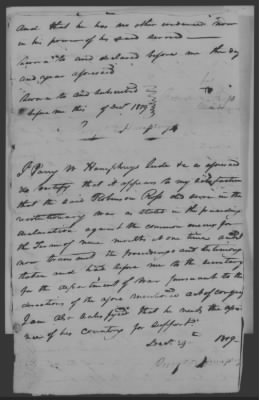 And that he has no other evidence now
in his power of his said service
Sworn to and declared before me the day
and year aforesaid
Sworn to and subscribed
before me this of Octr 1819
I Parry W Humphreys Judge &c as aforesaid
do certify that it appears to my satisfaction
that the said Robinson Ross did serve in the
revolutionary war as stated in the preceding
declaration against the common enemy for
the Term of nine months at one time and I
now transmit the proceedings and testimony
taken and had before me to the secretary
for the department of war pursuant to the
directions of the afore mentioned act of congress
I am also satisfied that he needs the assis
nce of his country for support.
1819